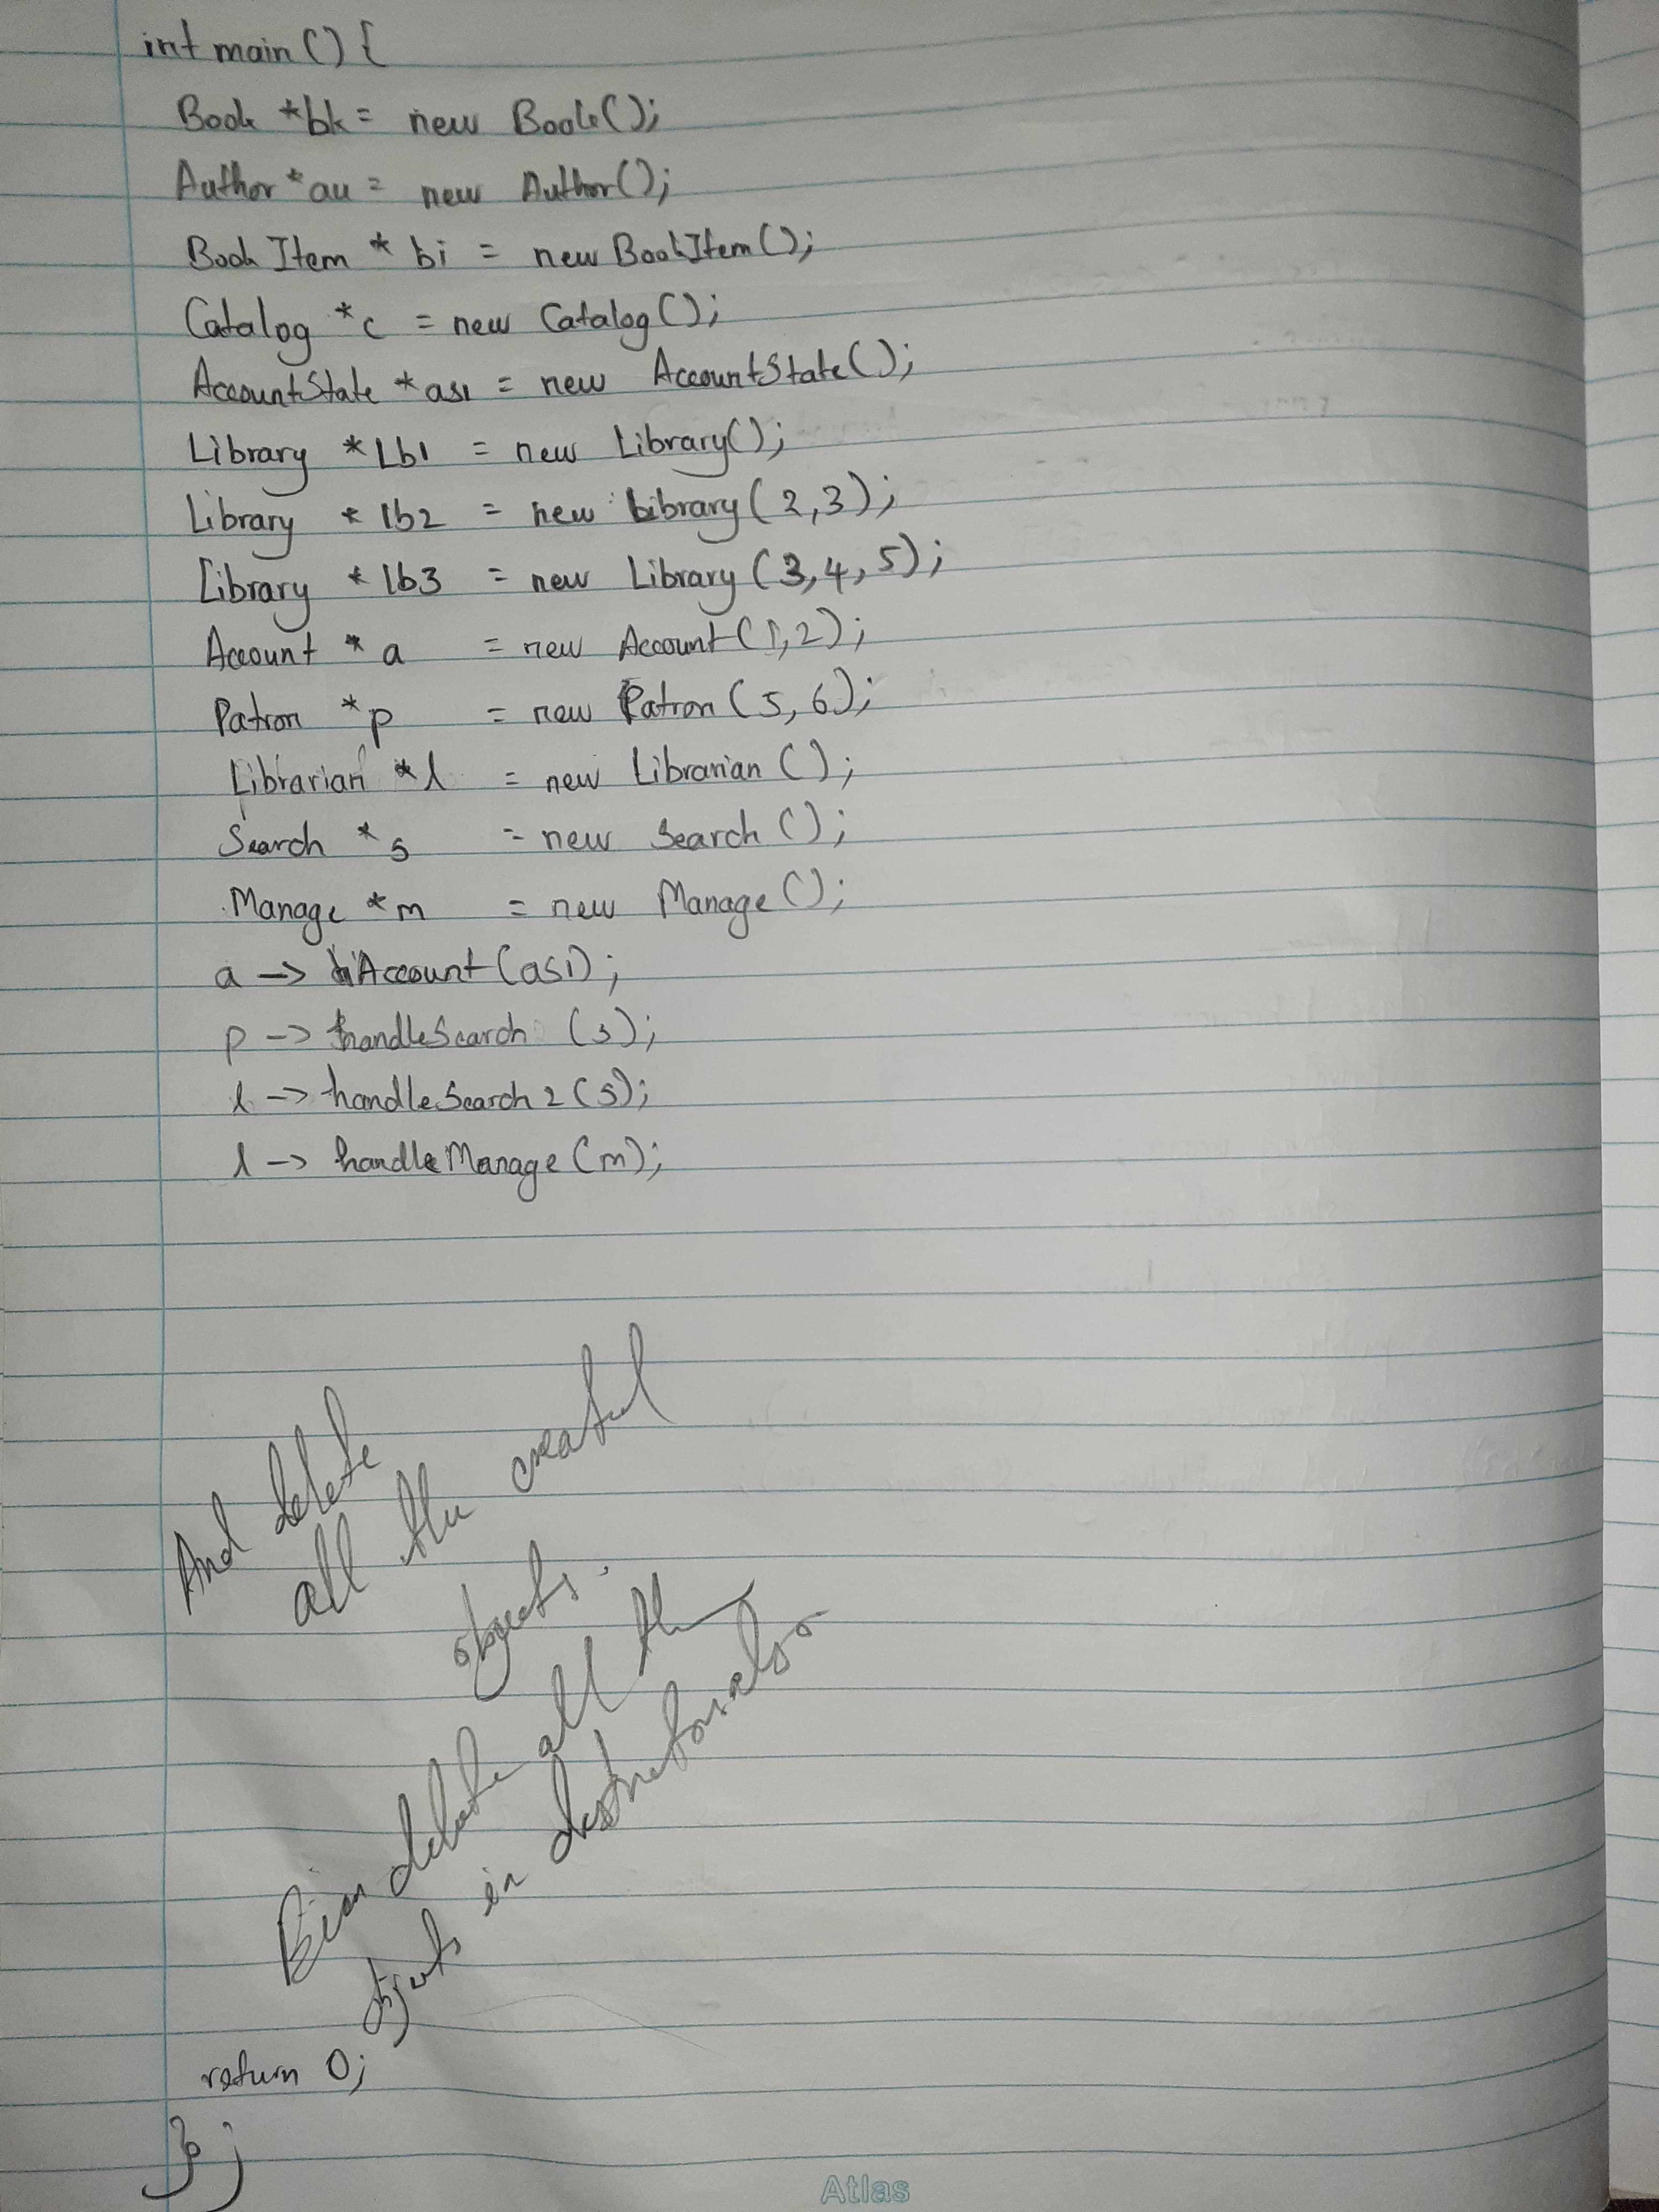 int main () {
Book *bk = new Book();
Author *au = new Author();
Book Item * bi = new BookItem();
Catalog *c = new Catalog();
AccountState *as1 = new AccountState();
Library *Lb1 = new Library();
Library * lb2 = new Library(2,3);
Library * lb3 = new Library (3,4,5);
Account * a = new Account(1,2);
Patron *p = new Patron (5,6);
Librarian *l = new Librarian ();
Search *s = new Search ();
Manage *m = new Manage ();
a -> Account(as1);
p -> handleSearch (s);
l -> handleSearch2(s);
l -> handleManage(m);
And delete
all the created
objects.
delete all the
objects in
return 0;
};
Atlas